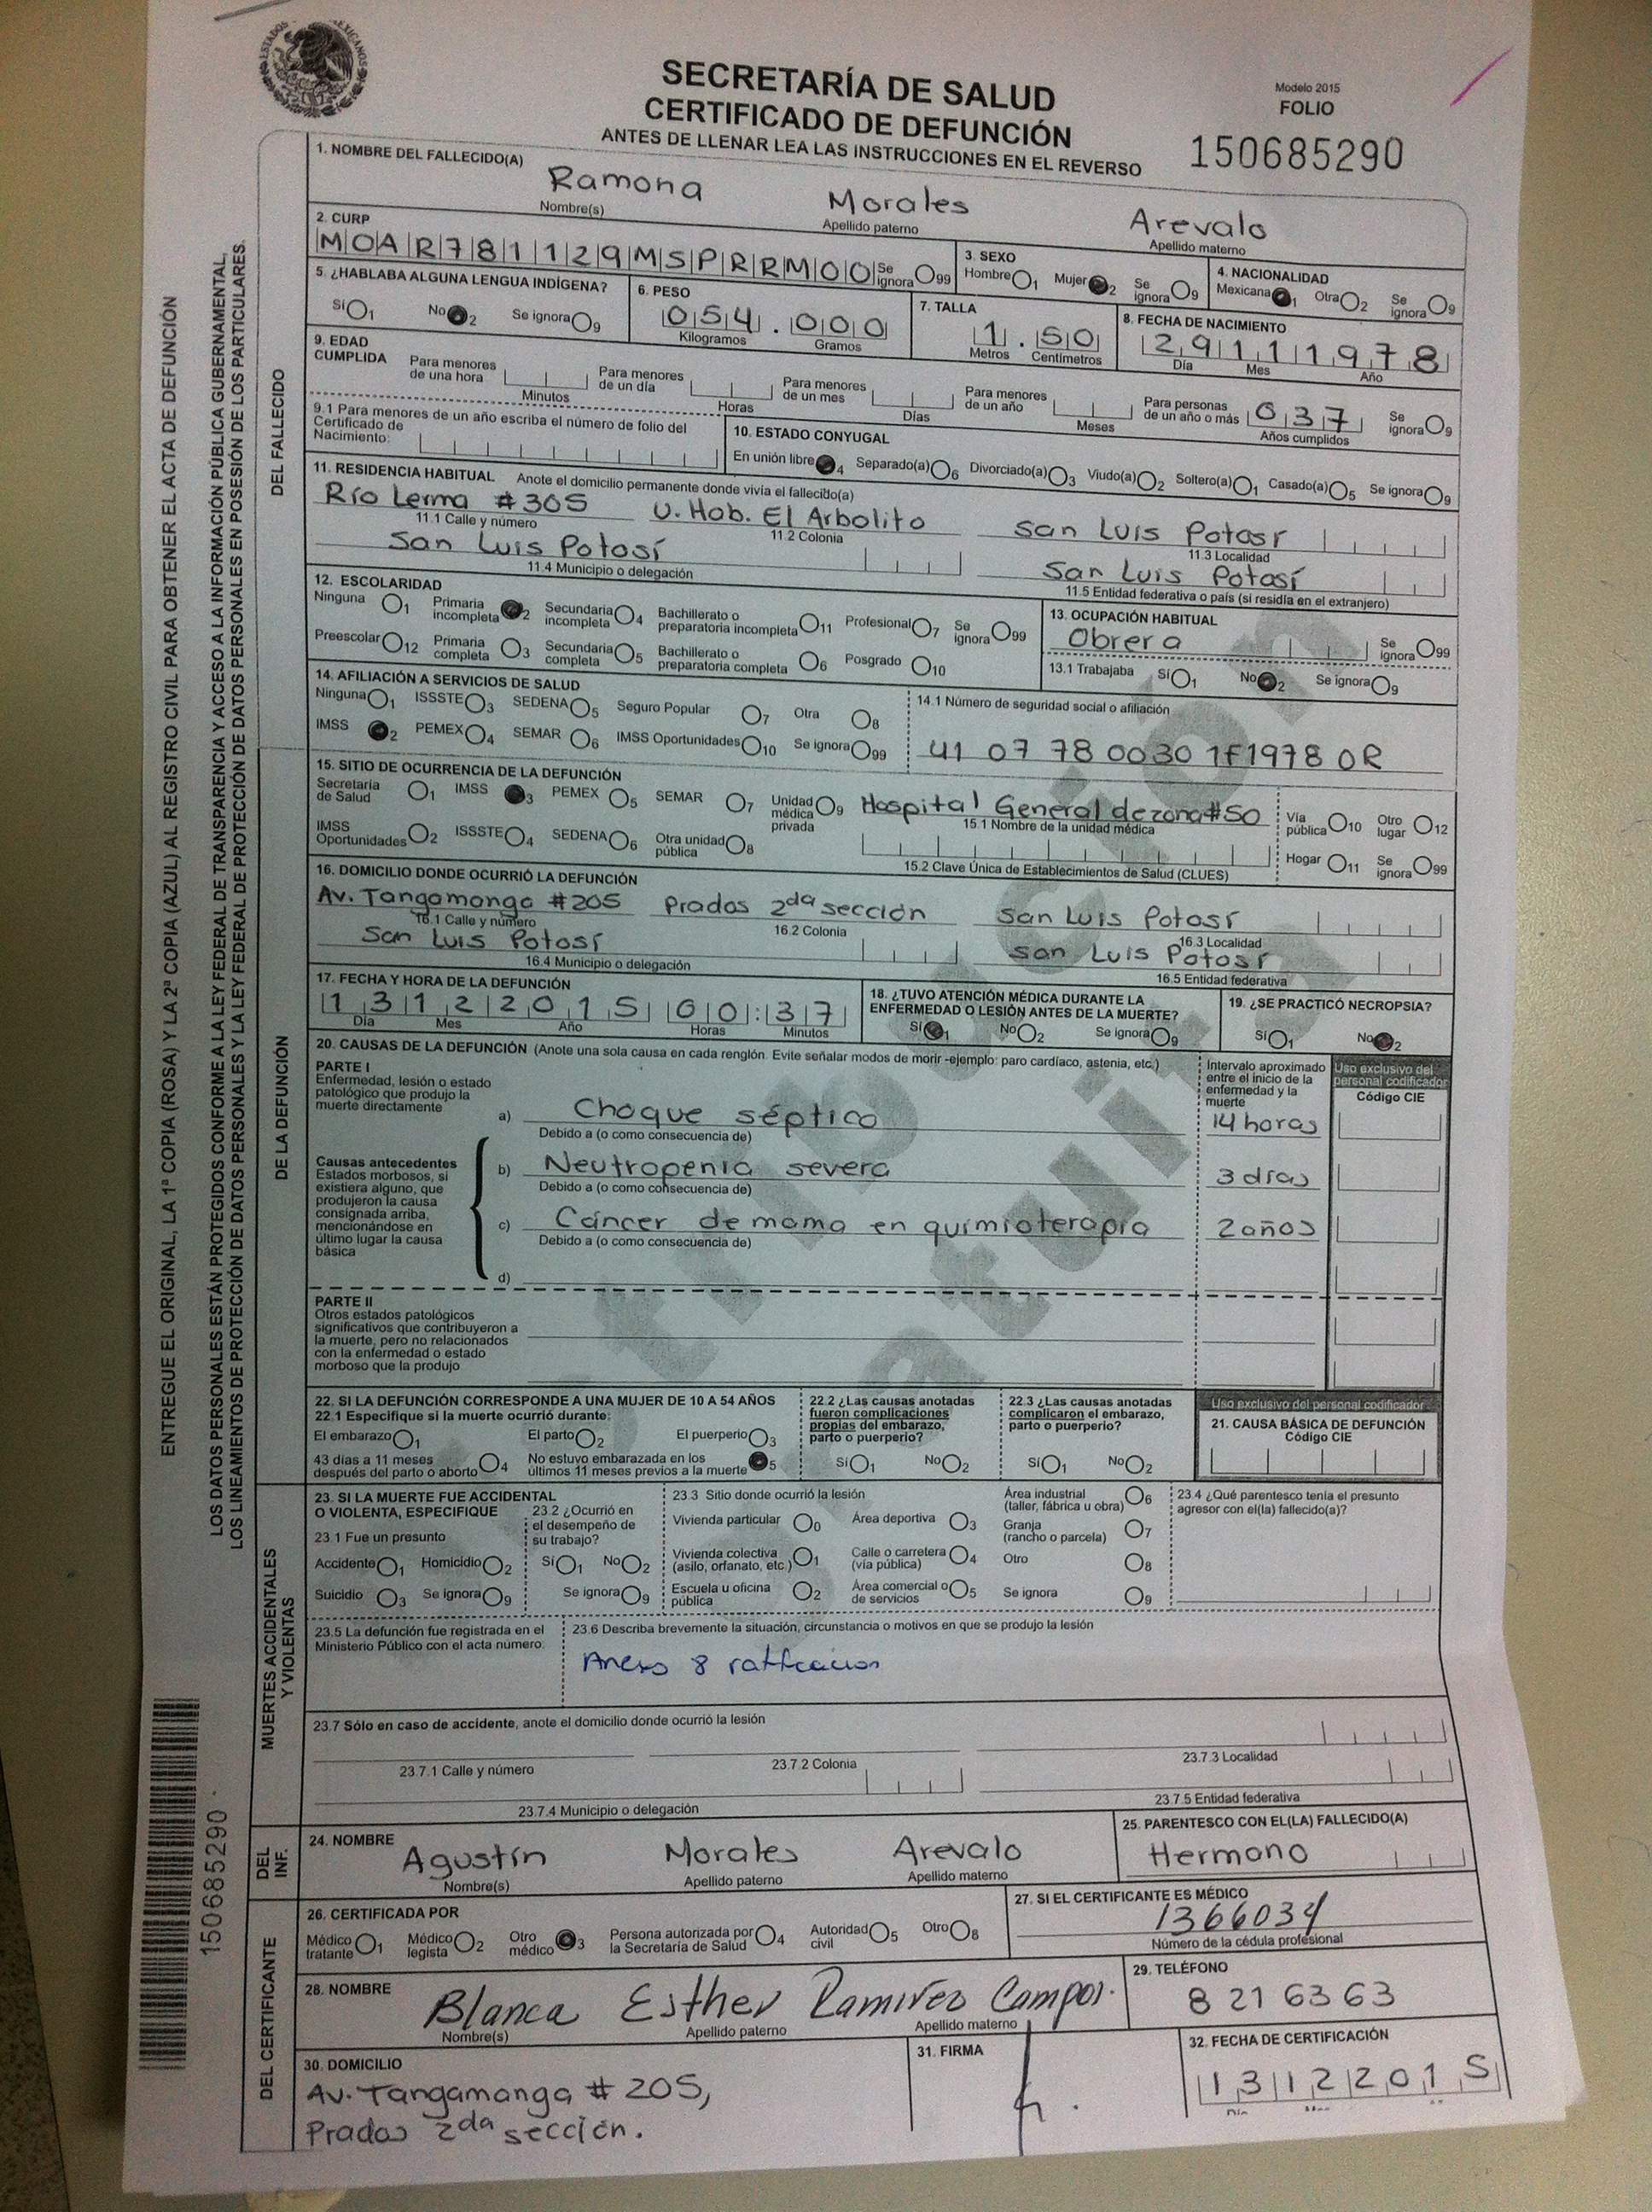 ESTADOS UNIDOS MEXICANOS
SECRETARÍA DE SALUD
CERTIFICADO DE DEFUNCIÓN
ANTES DE LLENAR LEA LAS INSTRUCCIONES EN EL REVERSO
Modelo 2015
FOLIO
150685290
ENTREGUE EL ORIGINAL, LA 1ª COPIA (ROSA) Y LA 2ª COPIA (AZUL) AL REGISTRO CIVIL PARA OBTENER EL ACTA DE DEFUNCIÓN
LOS DATOS PERSONALES ESTÁN PROTEGIDOS CONFORME A LA LEY FEDERAL DE TRANSPARENCIA Y ACCESO A LA INFORMACIÓN PÚBLICA GUBERNAMENTAL,
LOS LINEAMIENTOS DE PROTECCIÓN DE DATOS PERSONALES Y LA LEY FEDERAL DE PROTECCIÓN DE DATOS PERSONALES EN POSESIÓN DE LOS PARTICULARES.
150685290
DEL FALLECIDO
1. NOMBRE DEL FALLECIDO(A)
Ramona Morales Arevalo
Nombre(s) Apellido paterno Apellido materno
2. CURP
MOAR781129MSPRRM00 Se ignora 99
3. SEXO
Hombre 1 Mujer 2 Se ignora 9
4. NACIONALIDAD
Mexicana 1 Otra 2 Se ignora 9
5. ¿HABLABA ALGUNA LENGUA INDÍGENA?
Sí 1 No 2 Se ignora 9
6. PESO
054.000
Kilogramos Gramos
7. TALLA
1.50
Metros Centímetros
8. FECHA DE NACIMIENTO
29111978
Día Mes Año
9. EDAD CUMPLIDA
Para menores de una hora Minutos
Para menores de un día Horas
Para menores de un mes Días
Para menores de un año Meses
Para personas de un año o más 037 Años cumplidos
Se ignora 9
9.1 Para menores de un año escriba el número de folio del Certificado de Nacimiento:
10. ESTADO CONYUGAL
En unión libre 4 Separado(a) 6 Divorciado(a) 3 Viudo(a) 2 Soltero(a) 1 Casado(a) 5 Se ignora 9
11. RESIDENCIA HABITUAL Anote el domicilio permanente donde vivía el fallecido(a)
Río Lerma #305 U. Hab. El Arbolito San Luis Potosí
11.1 Calle y número 11.2 Colonia 11.3 Localidad
San Luis Potosí San Luis Potosí
11.4 Municipio o delegación 11.5 Entidad federativa o país (si residía en el extranjero)
12. ESCOLARIDAD
Ninguna 1 Primaria incompleta 2 Secundaria incompleta 4 Bachillerato o preparatoria incompleta 11 Profesional 7 Se ignora 99
Preescolar 12 Primaria completa 3 Secundaria completa 5 Bachillerato o preparatoria completa 6 Posgrado 10
13. OCUPACIÓN HABITUAL
Obrera Se ignora 99
13.1 Trabajaba Sí 1 No 2 Se ignora 9
14. AFILIACIÓN A SERVICIOS DE SALUD
Ninguna 1 ISSSTE 3 SEDENA 5 Seguro Popular 7 Otra 8
IMSS 2 PEMEX 4 SEMAR 6 IMSS Oportunidades 10 Se ignora 99
14.1 Número de seguridad social o afiliación
41 07 78 0030 1F1978 OR
DE LA DEFUNCIÓN
15. SITIO DE OCURRENCIA DE LA DEFUNCIÓN
Secretaría de Salud 1 IMSS 3 PEMEX 5 SEMAR 7 Unidad médica privada 9
IMSS Oportunidades 2 ISSSTE 4 SEDENA 6 Otra unidad pública 8
Hospital General de zona #50
15.1 Nombre de la unidad médica
15.2 Clave Única de Establecimientos de Salud (CLUES)
Vía pública 10 Otro lugar 12
Hogar 11 Se ignora 99
16. DOMICILIO DONDE OCURRIÓ LA DEFUNCIÓN
Av. Tangamanga #205 Prados 2da sección San Luis Potosí
16.1 Calle y número 16.2 Colonia 16.3 Localidad
San Luis Potosí San Luis Potosí
16.4 Municipio o delegación 16.5 Entidad federativa
17. FECHA Y HORA DE LA DEFUNCIÓN
13122015 00:37
Día Mes Año Horas Minutos
18. ¿TUVO ATENCIÓN MÉDICA DURANTE LA ENFERMEDAD O LESIÓN ANTES DE LA MUERTE?
Sí 1 No 2 Se ignora 9
19. ¿SE PRACTICÓ NECROPSIA?
Sí 1 No 2
20. CAUSAS DE LA DEFUNCIÓN (Anote una sola causa en cada renglón. Evite señalar modos de morir -ejemplo: paro cardíaco, astenia, etc.)
Intervalo aproximado entre el inicio de la enfermedad y la muerte
Uso exclusivo del personal codificador
Código CIE
PARTE I
Enfermedad, lesión o estado patológico que produjo la muerte directamente
a) Choque séptico 14 horas
Debido a (o como consecuencia de)
Causas antecedentes
Estados morbosos, si existiera alguno, que produjeron la causa consignada arriba, mencionándose en último lugar la causa básica
b) Neutropenia severa 3 días
Debido a (o como consecuencia de)
c) Cáncer de mama en quimioterapia 2 años
Debido a (o como consecuencia de)
d)
PARTE II
Otros estados patológicos significativos que contribuyeron a la muerte, pero no relacionados con la enfermedad o estado morboso que la produjo
22. SI LA DEFUNCIÓN CORRESPONDE A UNA MUJER DE 10 A 54 AÑOS
22.1 Especifique si la muerte ocurrió durante:
El embarazo 1 El parto 2 El puerperio 3
43 días a 11 meses después del parto o aborto 4 No estuvo embarazada en los últimos 11 meses previos a la muerte 5
22.2 ¿Las causas anotadas fueron complicaciones propias del embarazo, parto o puerperio?
Sí 1 No 2
22.3 ¿Las causas anotadas complicaron el embarazo, parto o puerperio?
Sí 1 No 2
Uso exclusivo del personal codificador
21. CAUSA BÁSICA DE DEFUNCIÓN
Código CIE
MUERTES ACCIDENTALES Y VIOLENTAS
23. SI LA MUERTE FUE ACCIDENTAL O VIOLENTA, ESPECIFIQUE
23.1 Fue un presunto
Accidente 1 Homicidio 2
Suicidio 3 Se ignora 9
23.2 ¿Ocurrió en el desempeño de su trabajo?
Sí 1 No 2
Se ignora 9
23.3 Sitio donde ocurrió la lesión
Vivienda particular 0 Área deportiva 3 Área industrial (taller, fábrica u obra) 6
Granja (rancho o parcela) 7
Vivienda colectiva (asilo, orfanato, etc.) 1 Calle o carretera (vía pública) 4 Otro 8
Escuela u oficina pública 2 Área comercial o de servicios 5 Se ignora 9
23.4 ¿Qué parentesco tenía el presunto agresor con el(la) fallecido(a)?
23.5 La defunción fue registrada en el Ministerio Público con el acta número:
23.6 Describa brevemente la situación, circunstancia o motivos en que se produjo la lesión
Anexo 8 ratificacion
23.7 Sólo en caso de accidente, anote el domicilio donde ocurrió la lesión
23.7.1 Calle y número 23.7.2 Colonia 23.7.3 Localidad
23.7.4 Municipio o delegación 23.7.5 Entidad federativa
DEL INF.
24. NOMBRE
Agustín Morales Arevalo
Nombre(s) Apellido paterno Apellido materno
25. PARENTESCO CON EL(LA) FALLECIDO(A)
Hermano
DEL CERTIFICANTE
26. CERTIFICADA POR
Médico tratante 1 Médico legista 2 Otro médico 3 Persona autorizada por la Secretaría de Salud 4 Autoridad civil 5 Otro 8
27. SI EL CERTIFICANTE ES MÉDICO
1366034
Número de la cédula profesional
28. NOMBRE
Blanca Esther Ramirez Campos.
Nombre(s) Apellido paterno Apellido materno
29. TELÉFONO
8 21 63 63
30. DOMICILIO
Av. Tangamanga # 205,
Prados 2da sección.
31. FIRMA
32. FECHA DE CERTIFICACIÓN
13122015